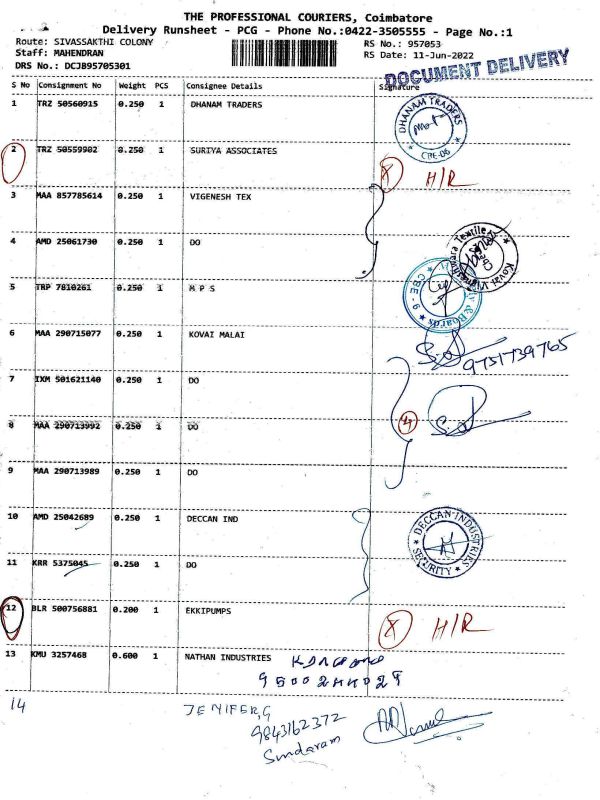 THE PROFESSIONAL COURIERS, Coimbatore
Delivery Runsheet - PCG - Phone No.:0422-3505555 - Page No.:1
Route: SIVASSAKTHI COLONY
RS No.: 957053
Staff: MAHENDRAN
RS Date: 11-Jun-2022
DRS No.: DCJ895705301
DOCUMENT DELIVERY
S No Consignment No Weight PCS Consignee Details Signature
1 TRZ 50560915 0.250 1 DHANAM TRADERS
DHANAM TRADERS
CBE-06
2 TRZ 50559902 0.250 1 SURIYA ASSOCIATES
X H/R
3 MAA 857785614 0.250 1 VIGENESH TEX
4 AMD 25061730 0.250 1 DO
5 TRP 7810261 0.250 1 M P S
CBE-9
& Boards
6 MAA 290715077 0.250 1 KOVAI MALAI
9751739765
7 IXM 501621140 0.250 1 DO
8 MAA 290713992 0.250 1 DO
4
9 MAA 290713989 0.250 1 DO
10 AMD 25042689 0.250 1 DECCAN IND
DECCAN INDUSTRIES
SECURITY
11 KRR 5375045 0.250 1 DO
12 BLR 500756881 0.200 1 EKKIPUMPS
X H/R
13 KMU 3257468 0.600 1 NATHAN INDUSTRIES
14 JENIFER.G
9843162372
Sundaram